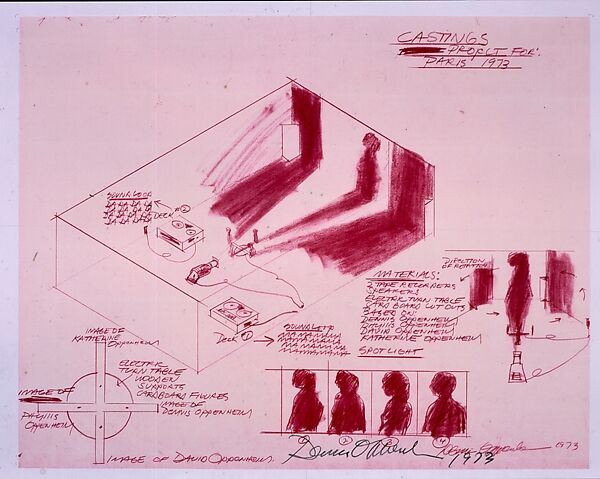 CASTINGS
PROJECT FOR:
PARIS 1973
SOUND LOOP
LA LA LA LA
LA LA LA LA
LA LA LA LA
LA LA LA LA
DECK ②
DIRECTION
OF ROTATION
MATERIALS:
2 TAPE RECORDERS
SPEAKERS
ELECTRIC TURN TABLE
CARD BOARD CUT OUTS
BASED ON:
DENNIS OPPENHEIM
PHYLLIS OPPENHEIM
DAVID OPPENHEIM
KATHERINE OPPENHEIM
SPOTLIGHT
DECK ①
SOUND LOOP
MA MA MA MA
MA MA MA MA
MA MA MA MA
MAMAMAMA
IMAGE OF
KATHERINE
OPPENHEIM
ELECTRIC
TURN TABLE
WOODEN
SUPPORTS
CARDBOARD FIGURES
IMAGE OF
DENNIS OPPENHEIM
IMAGE OF
PHYLLIS
OPPENHEIM
IMAGE OF DAVID OPPENHEIM.
① ② ③ 4
Dennis Oppenheim
1973
Dennis Oppenheim 1973